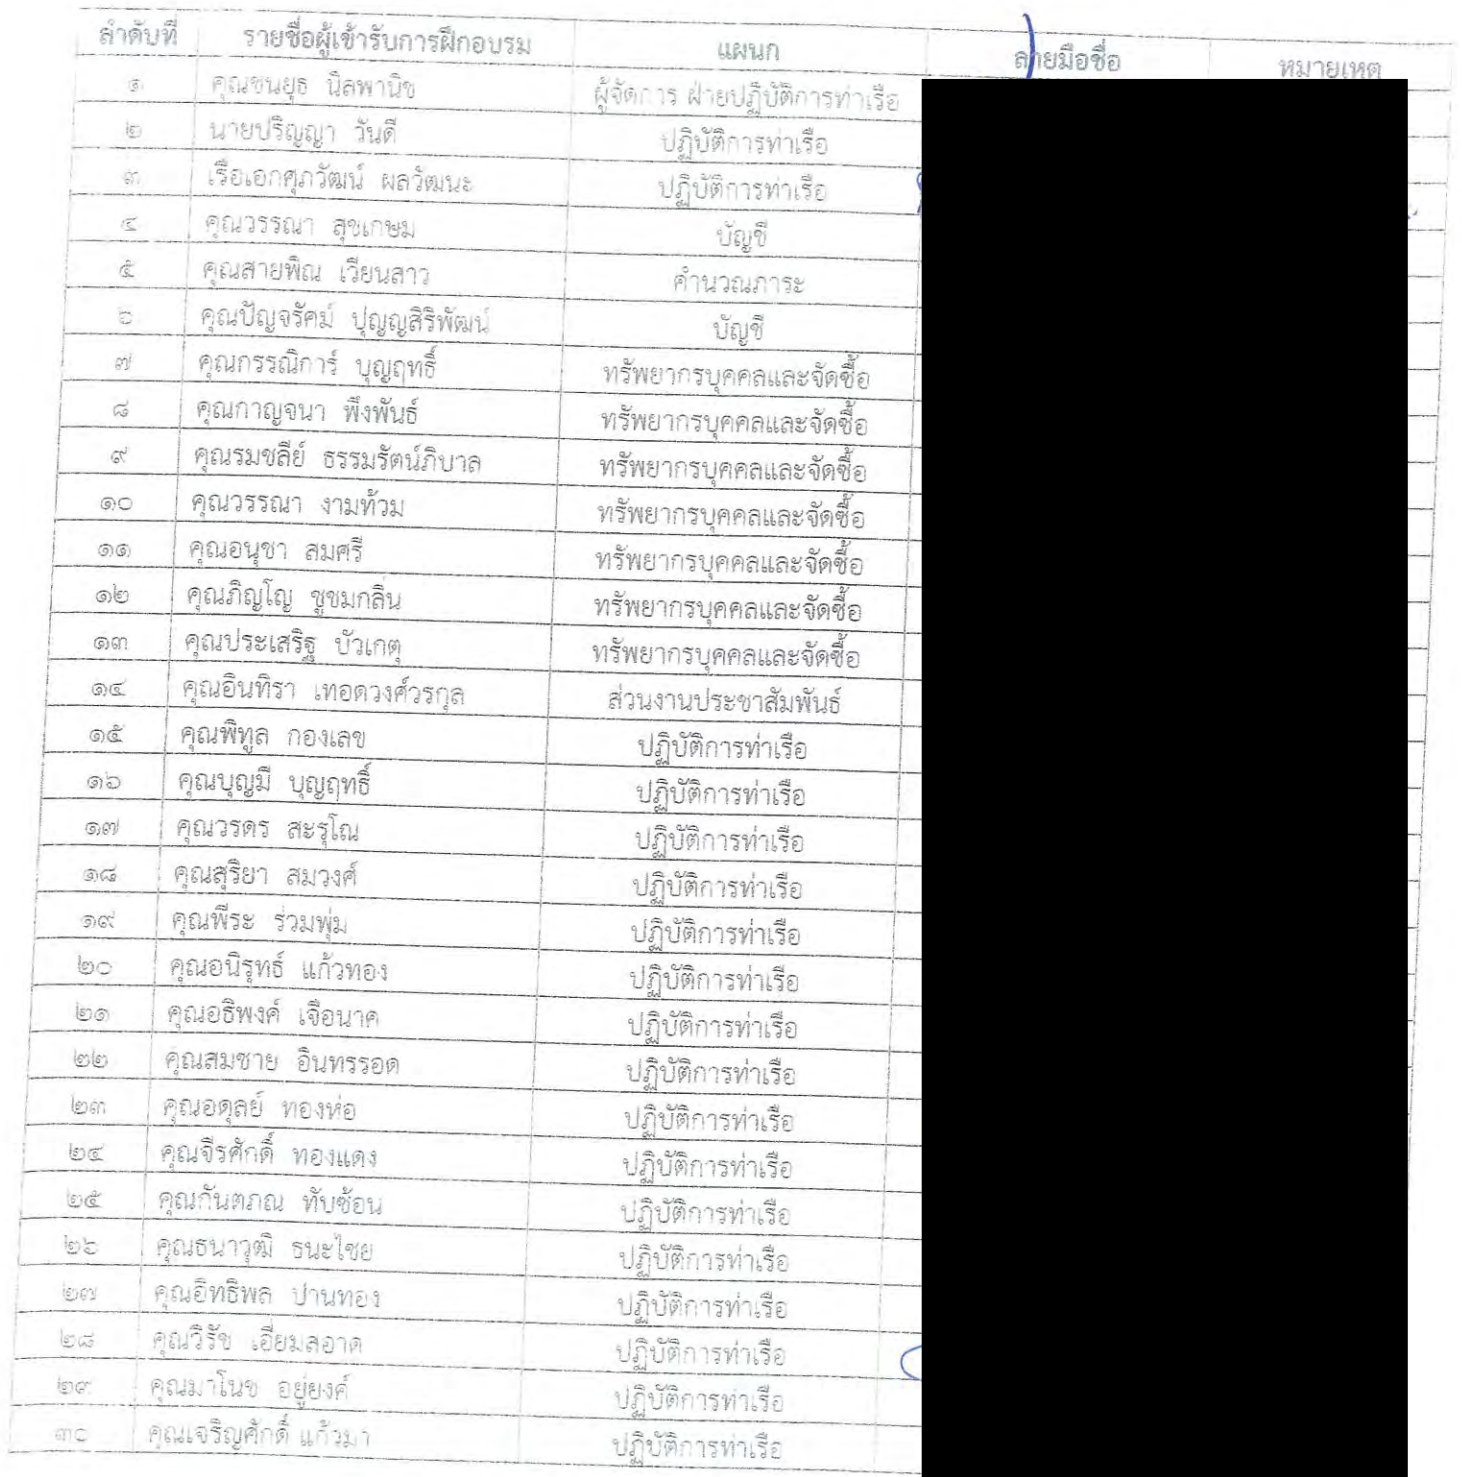 ลำดับที่ รายชื่อผู้เข้ารับการฝึกอบรม แผนก ลายมือชื่อ หมายเหตุ
๑ คุณชนยุธ นิลพานิช ผู้จัดการ ฝ่ายปฏิบัติการท่าเรือ
๒ นายปริญญา วันดี ปฏิบัติการท่าเรือ
๓ เรือเอกศุภวัฒน์ ผลวัฒนะ ปฏิบัติการท่าเรือ
๔ คุณวรรณา สุขเกษม บัญชี
๕ คุณสายพิณ เวียนลาว คำนวณภาระ
๖ คุณปัญจรัคม์ ปุญญสิริพัฒน์ บัญชี
๗ คุณกรรณิการ์ บุญฤทธิ์ ทรัพยากรบุคคลและจัดซื้อ
๘ คุณกาญจนา พึ่งพันธ์ ทรัพยากรบุคคลและจัดซื้อ
๙ คุณรมชลีย์ ธรรมรัตน์ภิบาล ทรัพยากรบุคคลและจัดซื้อ
๑๐ คุณวรรณา งามท้วม ทรัพยากรบุคคลและจัดซื้อ
๑๑ คุณอนุชา สมศรี ทรัพยากรบุคคลและจัดซื้อ
๑๒ คุณภิญโญ ชูชมกลิ่น ทรัพยากรบุคคลและจัดซื้อ
๑๓ คุณประเสริฐ บัวเกตุ ทรัพยากรบุคคลและจัดซื้อ
๑๔ คุณอินทิรา เทอดวงศ์วรกุล ส่วนงานประชาสัมพันธ์
๑๕ คุณพิทูล กองเลข ปฏิบัติการท่าเรือ
๑๖ คุณบุญมี บุญฤทธิ์ ปฏิบัติการท่าเรือ
๑๗ คุณวรดร สะรุโณ ปฏิบัติการท่าเรือ
๑๘ คุณสุริยา สมวงศ์ ปฏิบัติการท่าเรือ
๑๙ คุณพีระ ร่วมพุ่ม ปฏิบัติการท่าเรือ
๒๐ คุณอนิรุทธ์ แก้วทอง ปฏิบัติการท่าเรือ
๒๑ คุณอธิพงค์ เจือนาค ปฏิบัติการท่าเรือ
๒๒ คุณสมชาย อินทรรอด ปฏิบัติการท่าเรือ
๒๓ คุณอดุลย์ ทองห่อ ปฏิบัติการท่าเรือ
๒๔ คุณจีรศักดิ์ ทองแดง ปฏิบัติการท่าเรือ
๒๕ คุณกันตภณ ทับซ้อน ปฏิบัติการท่าเรือ
๒๖ คุณธนาวุฒิ ธนะไชย ปฏิบัติการท่าเรือ
๒๗ คุณอิทธิพล ปานทอง ปฏิบัติการท่าเรือ
๒๘ คุณวิรัช เอี่ยมสอาด ปฏิบัติการท่าเรือ
๒๙ คุณมาโนช อยู่ยงค์ ปฏิบัติการท่าเรือ
๓๐ คุณเจริญศักดิ์ แก้วมา ปฏิบัติการท่าเรือ